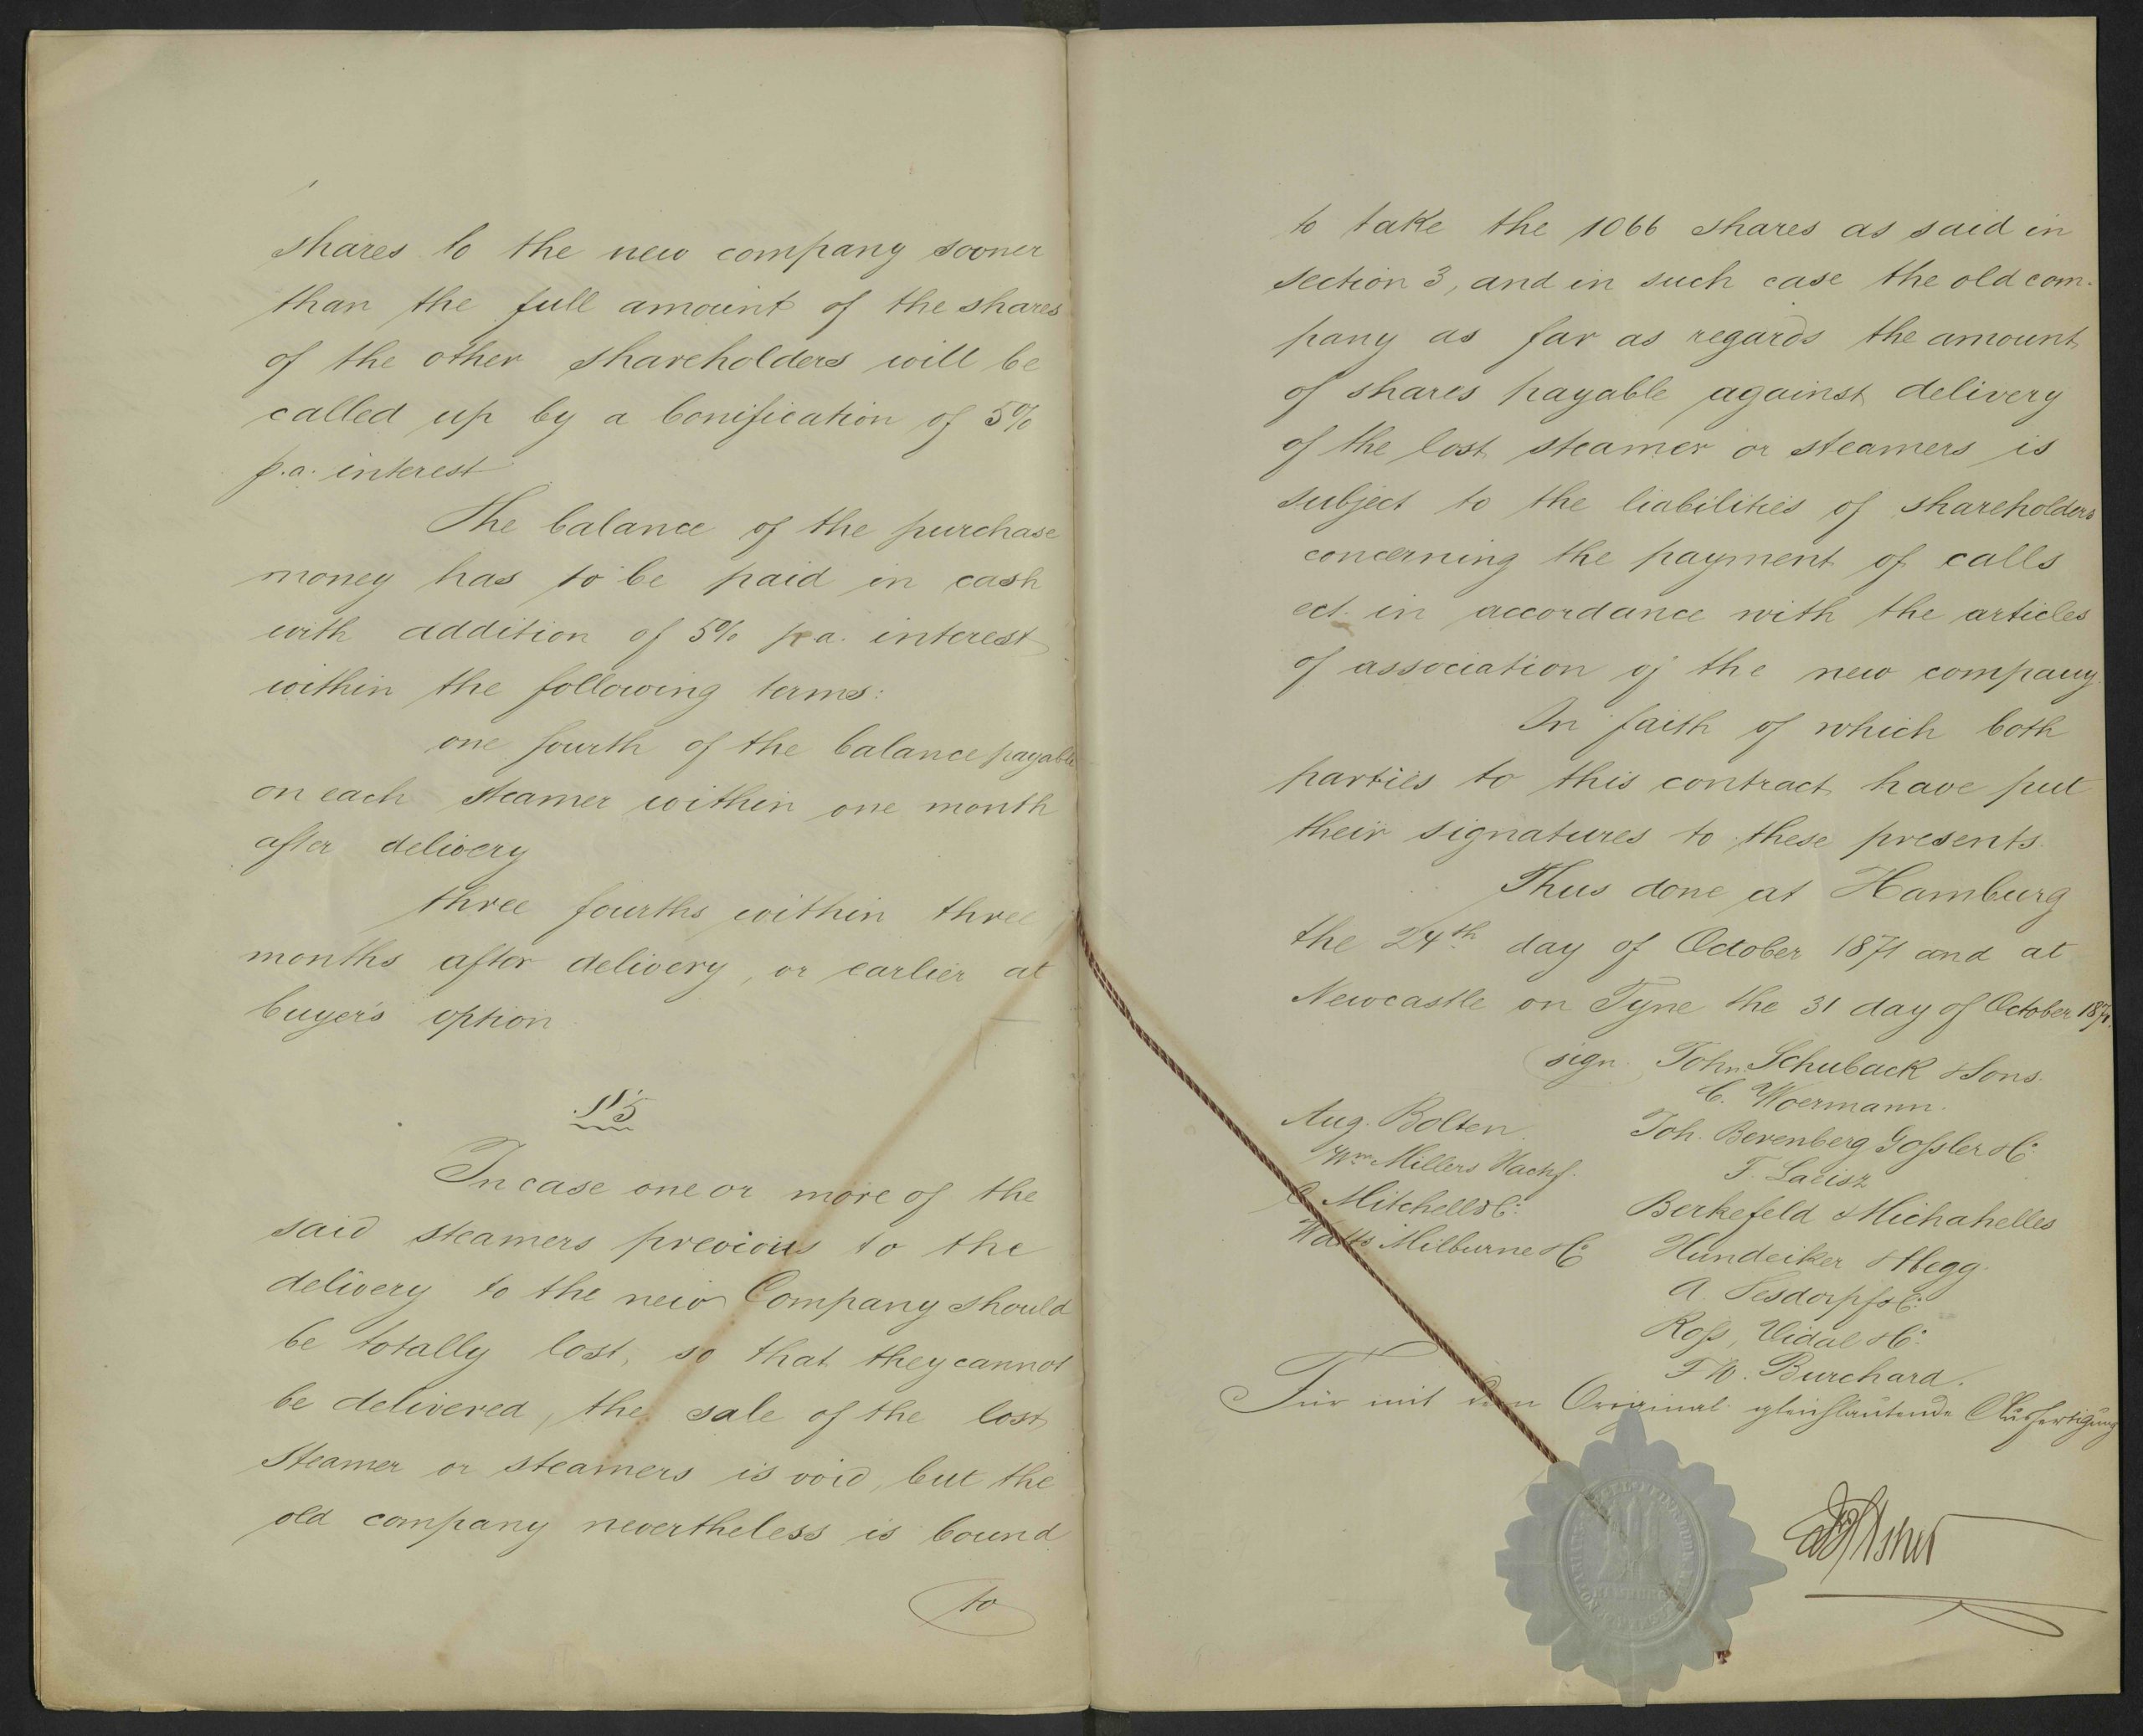 shares to the new company sooner
than the full amount of the shares
of the other shareholders will be
called up by a bonification of 5%
p.a. interest
The balance of the purchase
money has to be paid in cash
with addition of 5% p.a. interest
within the following terms:
one fourth of the balance payable
on each steamer within one month
after delivery
three fourths within three
months after delivery, or earlier at
buyer's option
§ 5
In case one or more of the
said steamers previous to the
delivery to the new Company should
be totally lost, so that they cannot
be delivered, the sale of the lost
steamer or steamers is void, but the
old company nevertheless is bound
to
to take the 1066 shares as said in
section 3, and in such case the old com-
pany as far as regards the amount
of shares payable against delivery
of the lost steamer or steamers is
subject to the liabilities of shareholders
concerning the payment of calls
ect. in accordance with the articles
of association of the new company.
In faith of which both
parties to this contract have put
their signatures to these presents.
Thus done at Hamburg
the 24th day of October 1871 and at
Newcastle on Tyne the 31 day of October 1871.
sign. John Schuback & Sons.
C. Woermann.
Aug. Bolten.
Joh. Berenberg Gossler & Co.
Wm. Millers Nachf.
F. Laeisz
C. Mitchell & Co.
Berkefeld & Michahelles
Watts Milburne & Co
Hundeiker & Abegg.
A. Sesdorpf & Co.
Ross, Vidal & Co.
F. W. Burchard.
Für mit dem Original gleichlautende Ausfertigung